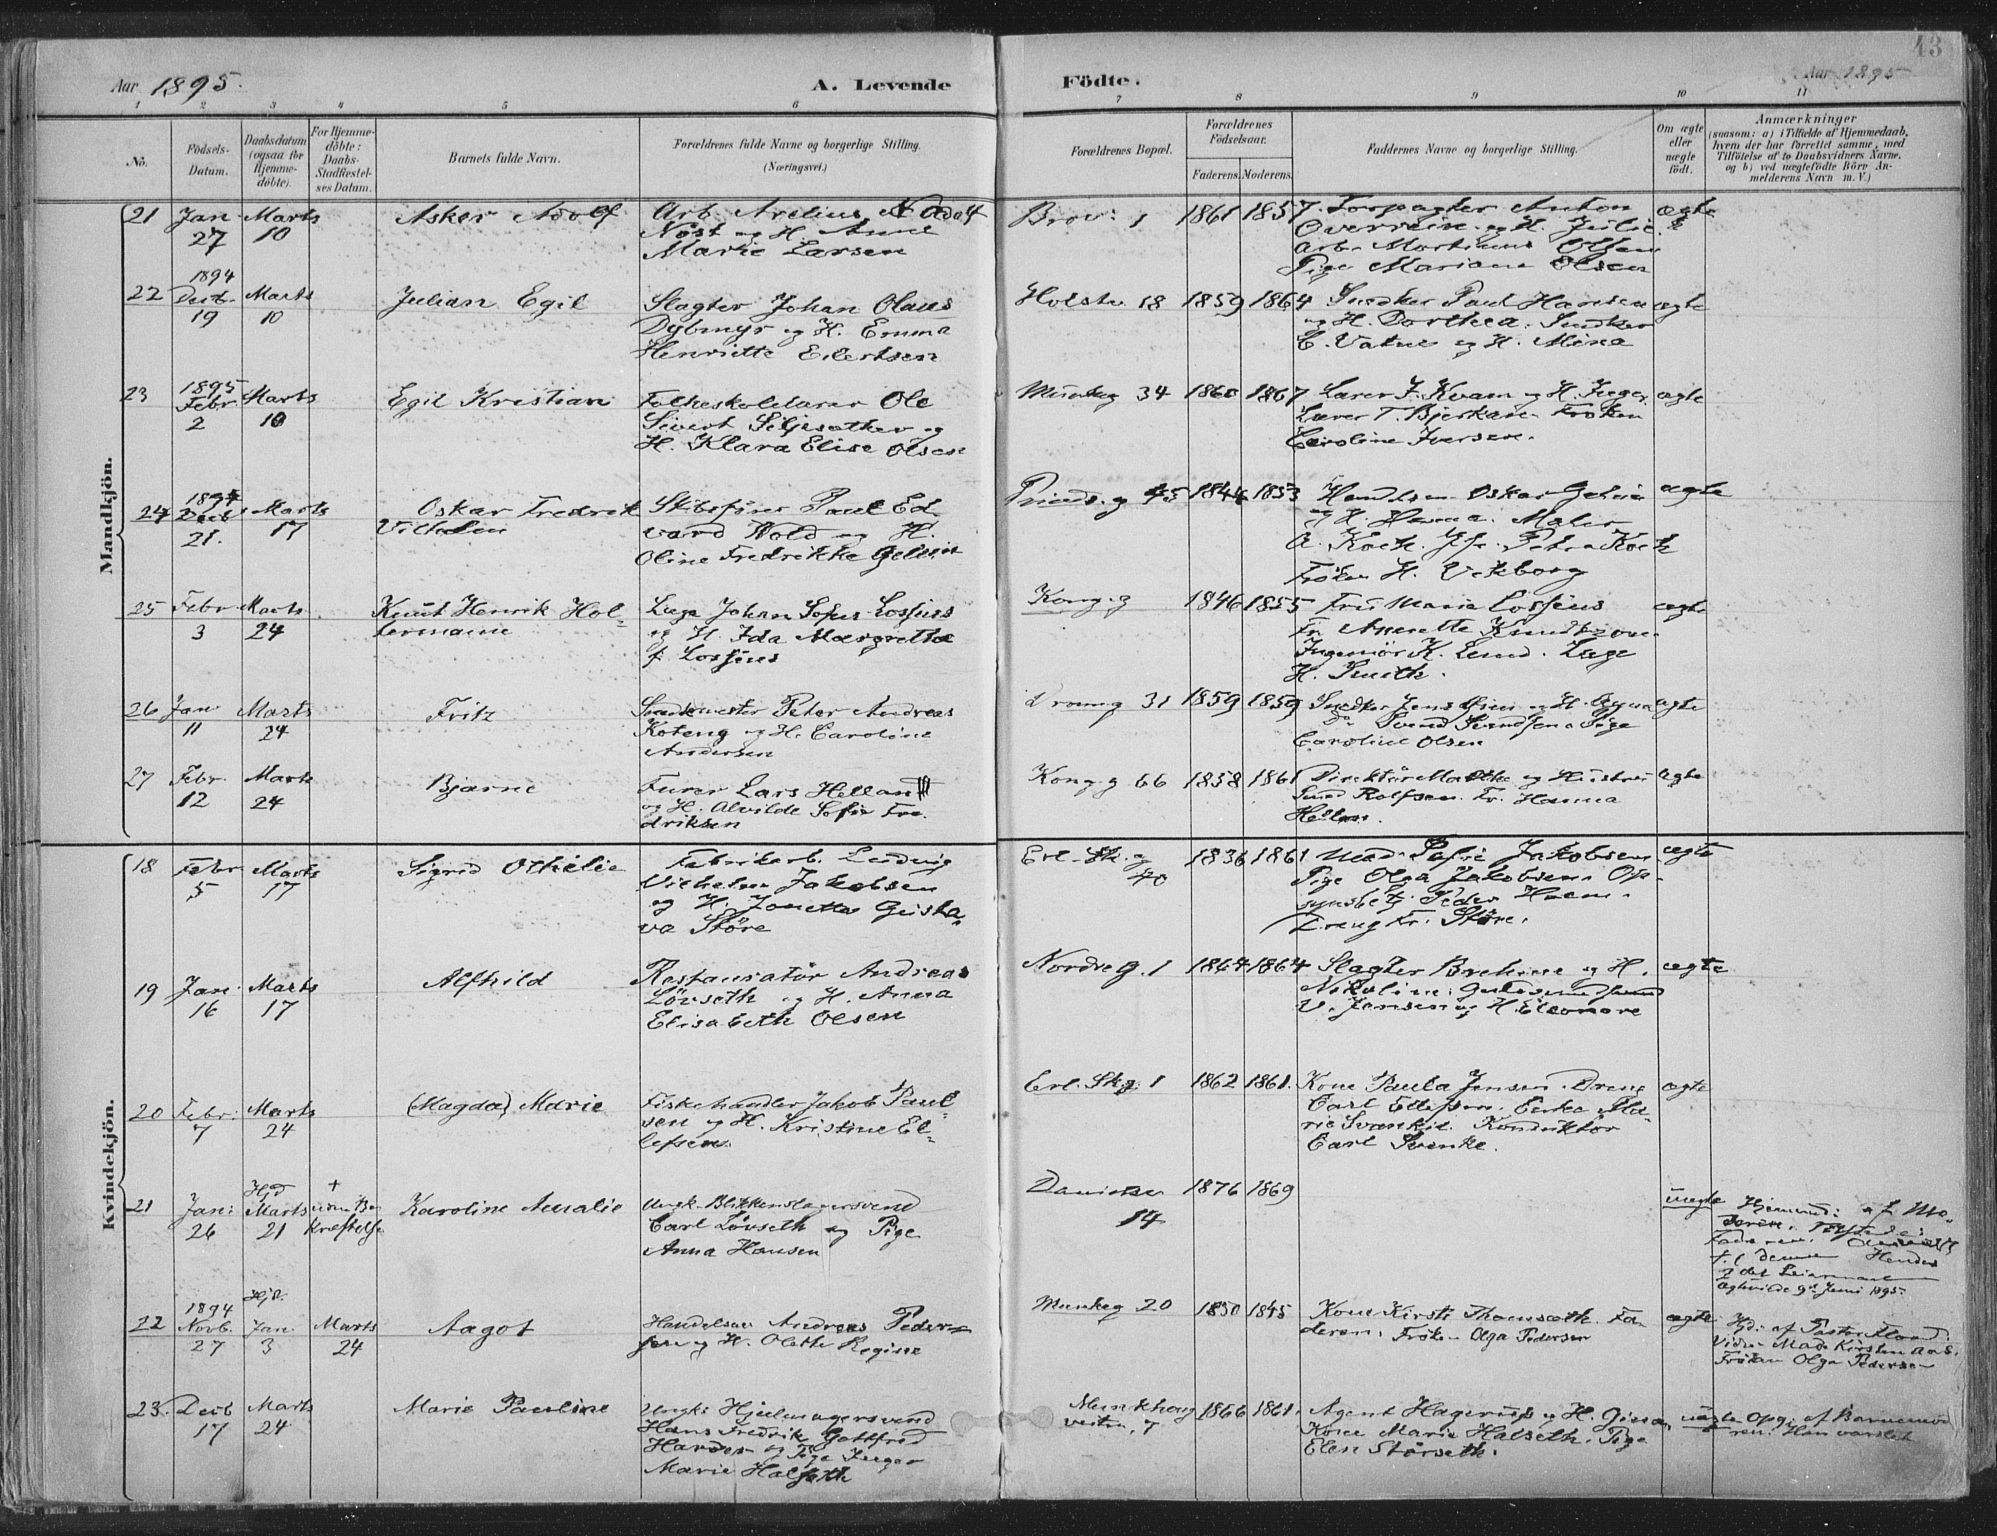 43
Aar 1895.
A. Levende
Födte.
Aar 1895
1 2 3 4 5 6 7 8 9 10 11
No.
Födsels-
Datum.
Daabsdatum
(ogsaa for
Hjemme-
döbte).
For Hjemme-
döbte:
Daabs-
Stadfæstel-
ses Datum.
Barnets fulde Navn.
Forældrenes fulde Navne og borgerlige Stilling.
(Næringsvei.)
Forældrenes Bopæl.
Forældrenes
Födselsaar.
Faderens. Moderens.
Faddernes Navne og borgerlige Stilling.
Om ægte
eller
uægte
födt.
Anmærkninger
(saasom: a) i Tilfælde af Hjemmedaab,
hvem der har forrettet samme, med
Tilföielse af to Daabsvidners Navne,
og b) ved uægtefödte Börn An-
melderens Navn m. V.)
Mandkjön.
21 Jan 27
Marts 10
Asker Adolf
Arb. Arelius Adolf
Nöst og H. Anne
Marie Larsen
1 1861 1857
Forpagter Anton
Overrein og H. Julie
Arb. Martinus Olsen
Pige Mariane Olsen
ægte
22 1894 Decb. 19
Marts 10
Julian Egil
Slagter Johan Olaus
Dybmyr og H. Emma
Henriette Eilertsen
Holstv 18 1859 1864
Snedker Paul Hansen
og H. Dorthea. Snedker
E. Vatne og H. Mina
ægte
23 1895 Febr. 2
Marts 10
Egil Kristian
Folkeskolelærer Ole
Sivert Siljesæther og
H. Klara Elise Olsen
Munkeg 34 1860 1867
Lærer J. Kvam og H. Inger
Lærer T. Bjerkan. Fröken
Caroline Iversen.
ægte
24 1894 Decb. 21.
Marts 17
Oskar Fredrik
Vilhelm
Skibsförer Paul Ed-
vard Wold og H.
Oline Fredrikke Gelein
Prinds. g 45 1844 1853
Handelsm Oskar Gelein
og H. Hanna. Maler
A. Koch. Jfr. Petra Koch
Fröken H. Vekborg
ægte
25 Febr. 3
Marts 24
Knut Henrik Hol-
termann
Læge Johan Sofus Lossius
og H. Ida Margrethe
f. Lossius
Kong. g 1846 1855
Fru Marie Lossius
Fr. Annette Knudtzon.
Ingeniör K. Lund. Læge
H. Smith.
ægte
26 Jan 11
Marts 24
Fritz
Peter Andreas
Koteng og H. Caroline
Andersen
Dronng 31 1859 1859
Snedker Jens og H.
Do Svend Svendsen. Pige
Caroline Olsen
ægte
27 Febr. 12
Marts 24
Bjarne
Furer Lars Helland
og H. Alvilde Sofie Fre-
driksen
Kong. g 66 1858 1861
Direktör og Hustru
Smed Rolfsen. Fr. Hanna
Helland
ægte
Kvindekjön.
18 Febr 5
Marts 17
Sigrid Othelie
Fabrikarb. Ludvig
Vilhelm Jakobsen
og H. Jonetta Gusta-
va Störe
Erl. Sk. g 40 1836 1861
Mad. Sofie Jakobsen
Pige Olga Jakobsen. Op-
synsbetj. Peder Haem.
Dreng Fr. Störe.
ægte
19 Jan. 16
Marts 17
Alfhild
Restauratör Andreas
Lövseth og H. Anna
Elisabeth Olsen
Nordre g. 1 1864 1864
Slagter Brekine og H.
Nikoline. Guldsmedsvend
V. Jensen og H. Eleonore
ægte
20 Febr. 7
Marts 24
(Magda) Marie
Fiskehandler Jakob Paul-
sen og H. Kristine El-
lefsen.
Erl. Sk. g. 1 1862 1861.
Kone Paula Jensen. Dreng
Carl Ellefsen. Enke Ma-
rie Svankil. Konduktör
Carl Svenke.
ægte
21 Jan. 26
Hjd Marts 21
+ uden Be
kræftelse
Karoline Amalie
Ungk. Blikkenslagersvend
Carl Lövseth og Pige
Anna Hansen
Danielsv 14 1876 1869
uægte
Hjemmed. af Mo-
deren.
22 1894 Novb. 27
Hjd. Jan. 3
Marts 24
Aagot
Handelsm Andreas Peder-
sen og H. Olette Regine
Munkeg 20 1850 1845
Kone Kirsti Thomsæth. Fa-
deren. Fröken Olga Pedersen
ægte
Hjd. af Pastor Flood.
Vidn. Mad. Kirsten Aas.
Fröken Olga Pedersen
23. Decb 17
Marts 24
Marie Pauline
Ungk. Hjulmagersvend
Hans Fredrik Gottfred
Hansen og Pige Inger
Marie Halseth
Munkhaug
veiten 7 1866 1861.
Agent Hagerup og H. Gina
Kone Marie Halseth. Pige
Elen Störseth.
uægte
Opg. af Barnemod
ren.